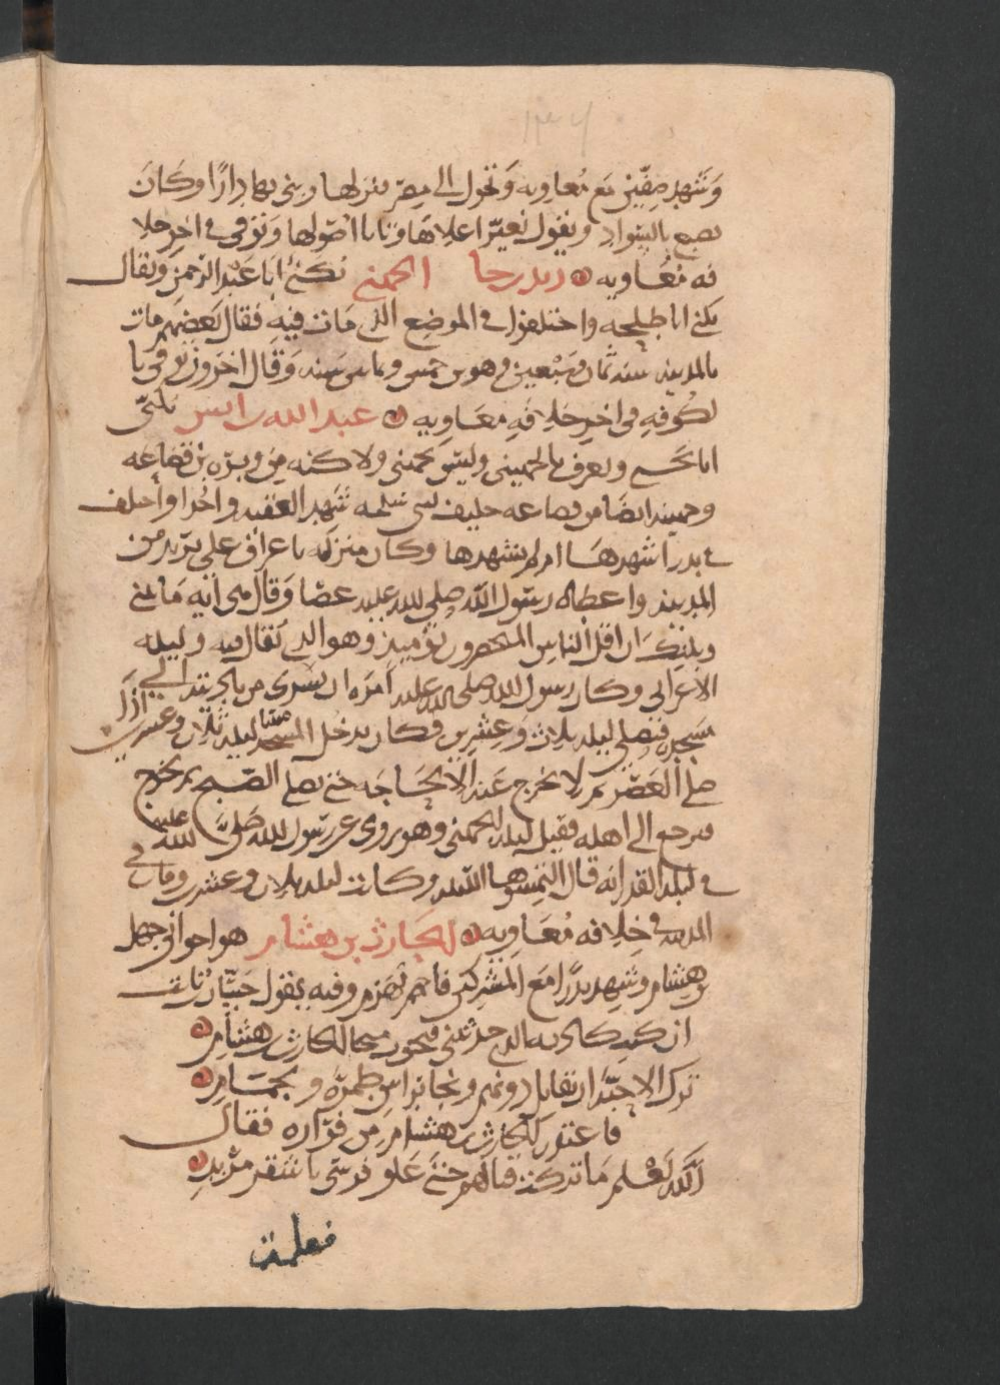 وشهد صفين مع معاويه وتحول الى مصر فنزلها وبنى بها دارا وكان
يصبغ بالسواد ويقول نغير اعلاها وتابا اصولها وتوفى في اخر خلا
فه معاويه زيد بن خا الجهني يكنى ابا عبد الرحمن ويقال
يكنى ابا طلحه واختلفوا في الموضع الذي مات فيه فقال بعضهم مات
بالمدينه سنه ثمان وسبعين وهو بن خمس وثمانين سنه وقال اخرون توفى با
لكوفه في اخر خلافه معاويه عبد الله بن انيس يكنى
ابا يحيى ويعرف بالجهيني وليس بجهني ولاكنه من وبره بن قضاعه
وجهينه ايضا من قضاعه حليف لبني سلمه شهد العقبه واحدا واختلف
في بدر اشهدها ام لم يشهدها وكان منزله باعراف على بريد من
المدينه واعطاه رسول الله صلى الله عليه عصا وقال هي ايه ما بيني
وبينك ان اقل الناس المتخصرون يوميذ وهو الذي يقال فيه وليله
الاعرابي وكان رسول الله صلى الله عليه امره ان يسرى من باديته الى
مسجده فيصلي ليله ثلاث وعشرين فكان يدخل المسجد مسا ليله ثلاث وعشرين اذا
صلى العصر ثم لا يخرج عنه الا لحاجه حتى يصلي الصبح ثم يخرج
فيرجع الى اهله فقيل ليله الجهني وهو روى عن رسول الله صلى الله عليه
في ليله القدر انه قال التمسوها الليله وكانت ليله ثلاث وعشرين ومات في
المدينه في خلافه معاويه الحارث بن هشام هو اخو ابي جهل
بن هشام وشهد بدرا مع المشركين فانهزم وفيه يقول حسان بن ثابت
ان كنت كاذبه الذي حدثتني فنجوت منجا الحارث بن هشام
ترك الاحبه ان يقاتل دونهم ونجا براس طمره ولجام
فاعتذر الحارث بن هشام من فراره فقال
الله يعلم ما تركت قتالهم حتى علو فرسي باشقر مزبد
فعلمت